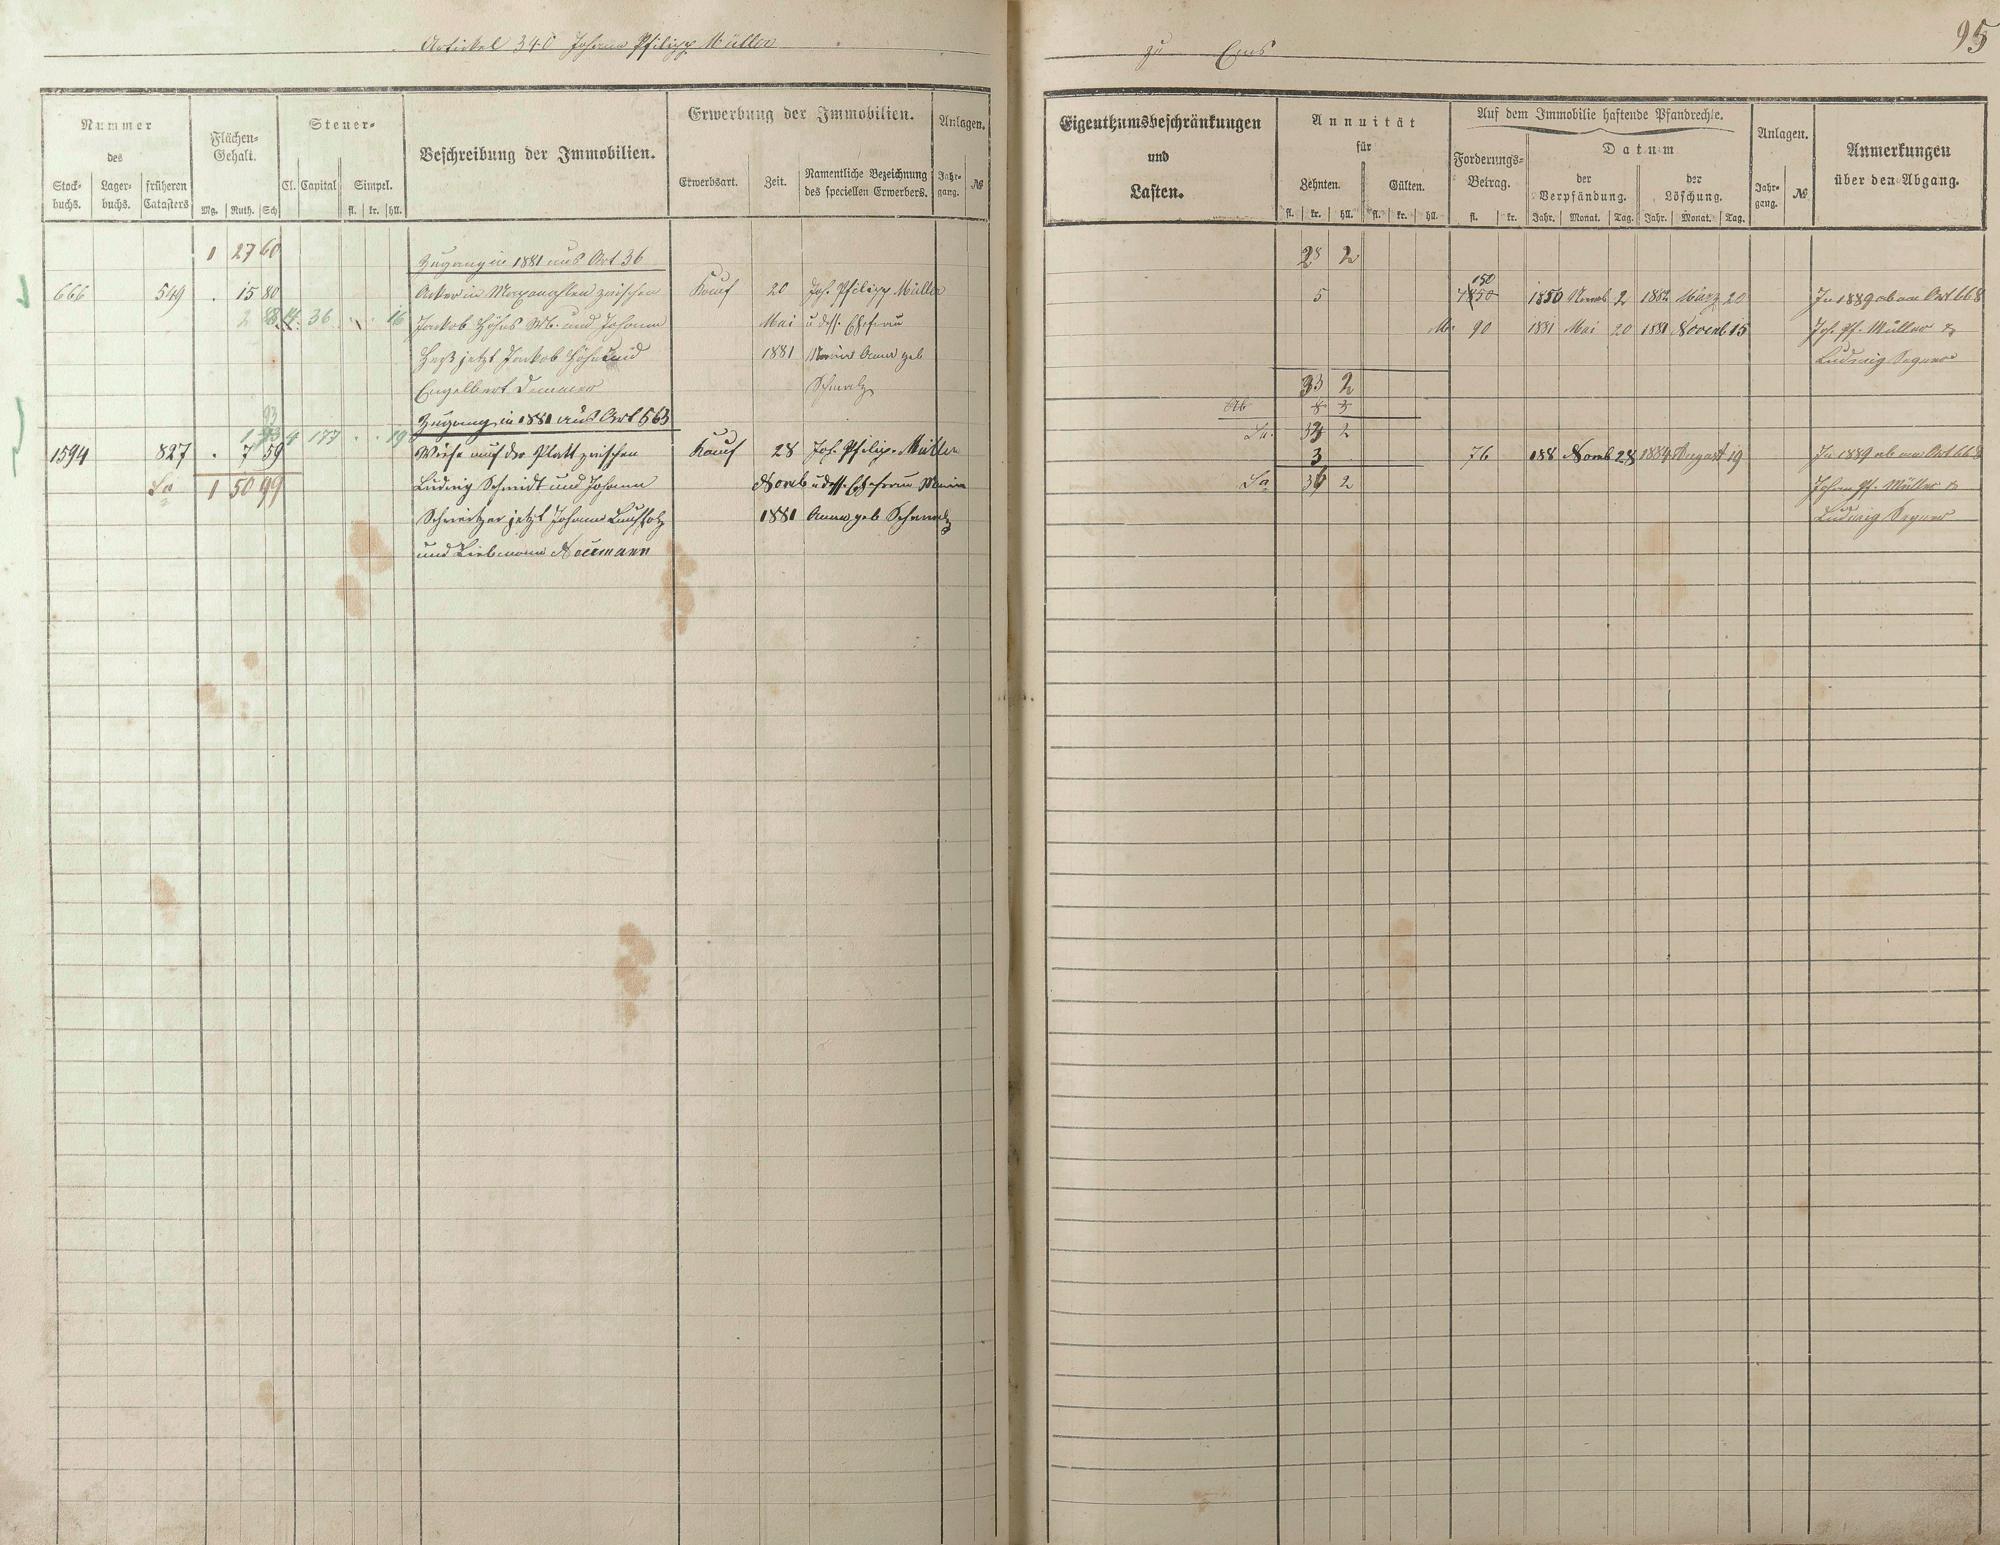 Artickel 340 Johann Philipp Müller
zu Ems
95
Nummer des
Stock-buchs. Lager-buchs. früheren Catasters
Flächen-Gehalt.
Mg. Ruth. Sch
Steuer-
Cl. Capital Simpel.
fl. kr. hll.
Beschreibung der Immobilien.
Erwerbung der Immobilien.
Erwerbsart. Zeit. Namentliche Bezeichnung des speciellen Erwerbers.
Anlagen.
Jahr-gang. №
Eigenthumsbeschränkungen und Lasten.
Annuität für
Zehnten. Gülten.
fl. kr. hll. fl. kr. hll.
Auf dem Immobilie haftende Pfandrechte.
Forderungs-Betrag.
fl. kr.
Datum
der Verpfändung. der Löschung.
Jahr. Monat. Tag. Jahr. Monat. Tag.
Anlagen.
Jahr-gang. №
Anmerkungen über den Abgang.
1 27 60
Zugang in 1881 aus Art 36
28 2
150
666 549 . 15 80 Acker in zwischen Kauf 20 Joh. Philipp Müller 5 1850 2 1882 März 20 In 1889 ab an Art 668
36 16 Jakob Höhns und Johann Mai u deß. Ehefrau 90 1881 Mai 20 1881 Novemb 15 Joh. Ph. Müller &
jetzt Jakob Höhn und 1881 Maria Anna geb Ludwig
Engelbert Schmalz 33 2
Ab
93
Zugang in 1881 aus Art 563
4 177 . . 19
2
1594 827 . 7 59 Wiese auf der Platt zwischen Kauf 28 Joh. Philip. Müller 3 76 188 Novb 28 1884 August 19 In 1889 ab an Art 668
Sa 1 50 99 Ludwig Schmidt und Johann Novb u deß. Ehefrau Maria Sa 36 2 Johann Ph. Müller &
jetzt Johann 1881 Anna geb Schmalz Ludwig
und Neumann